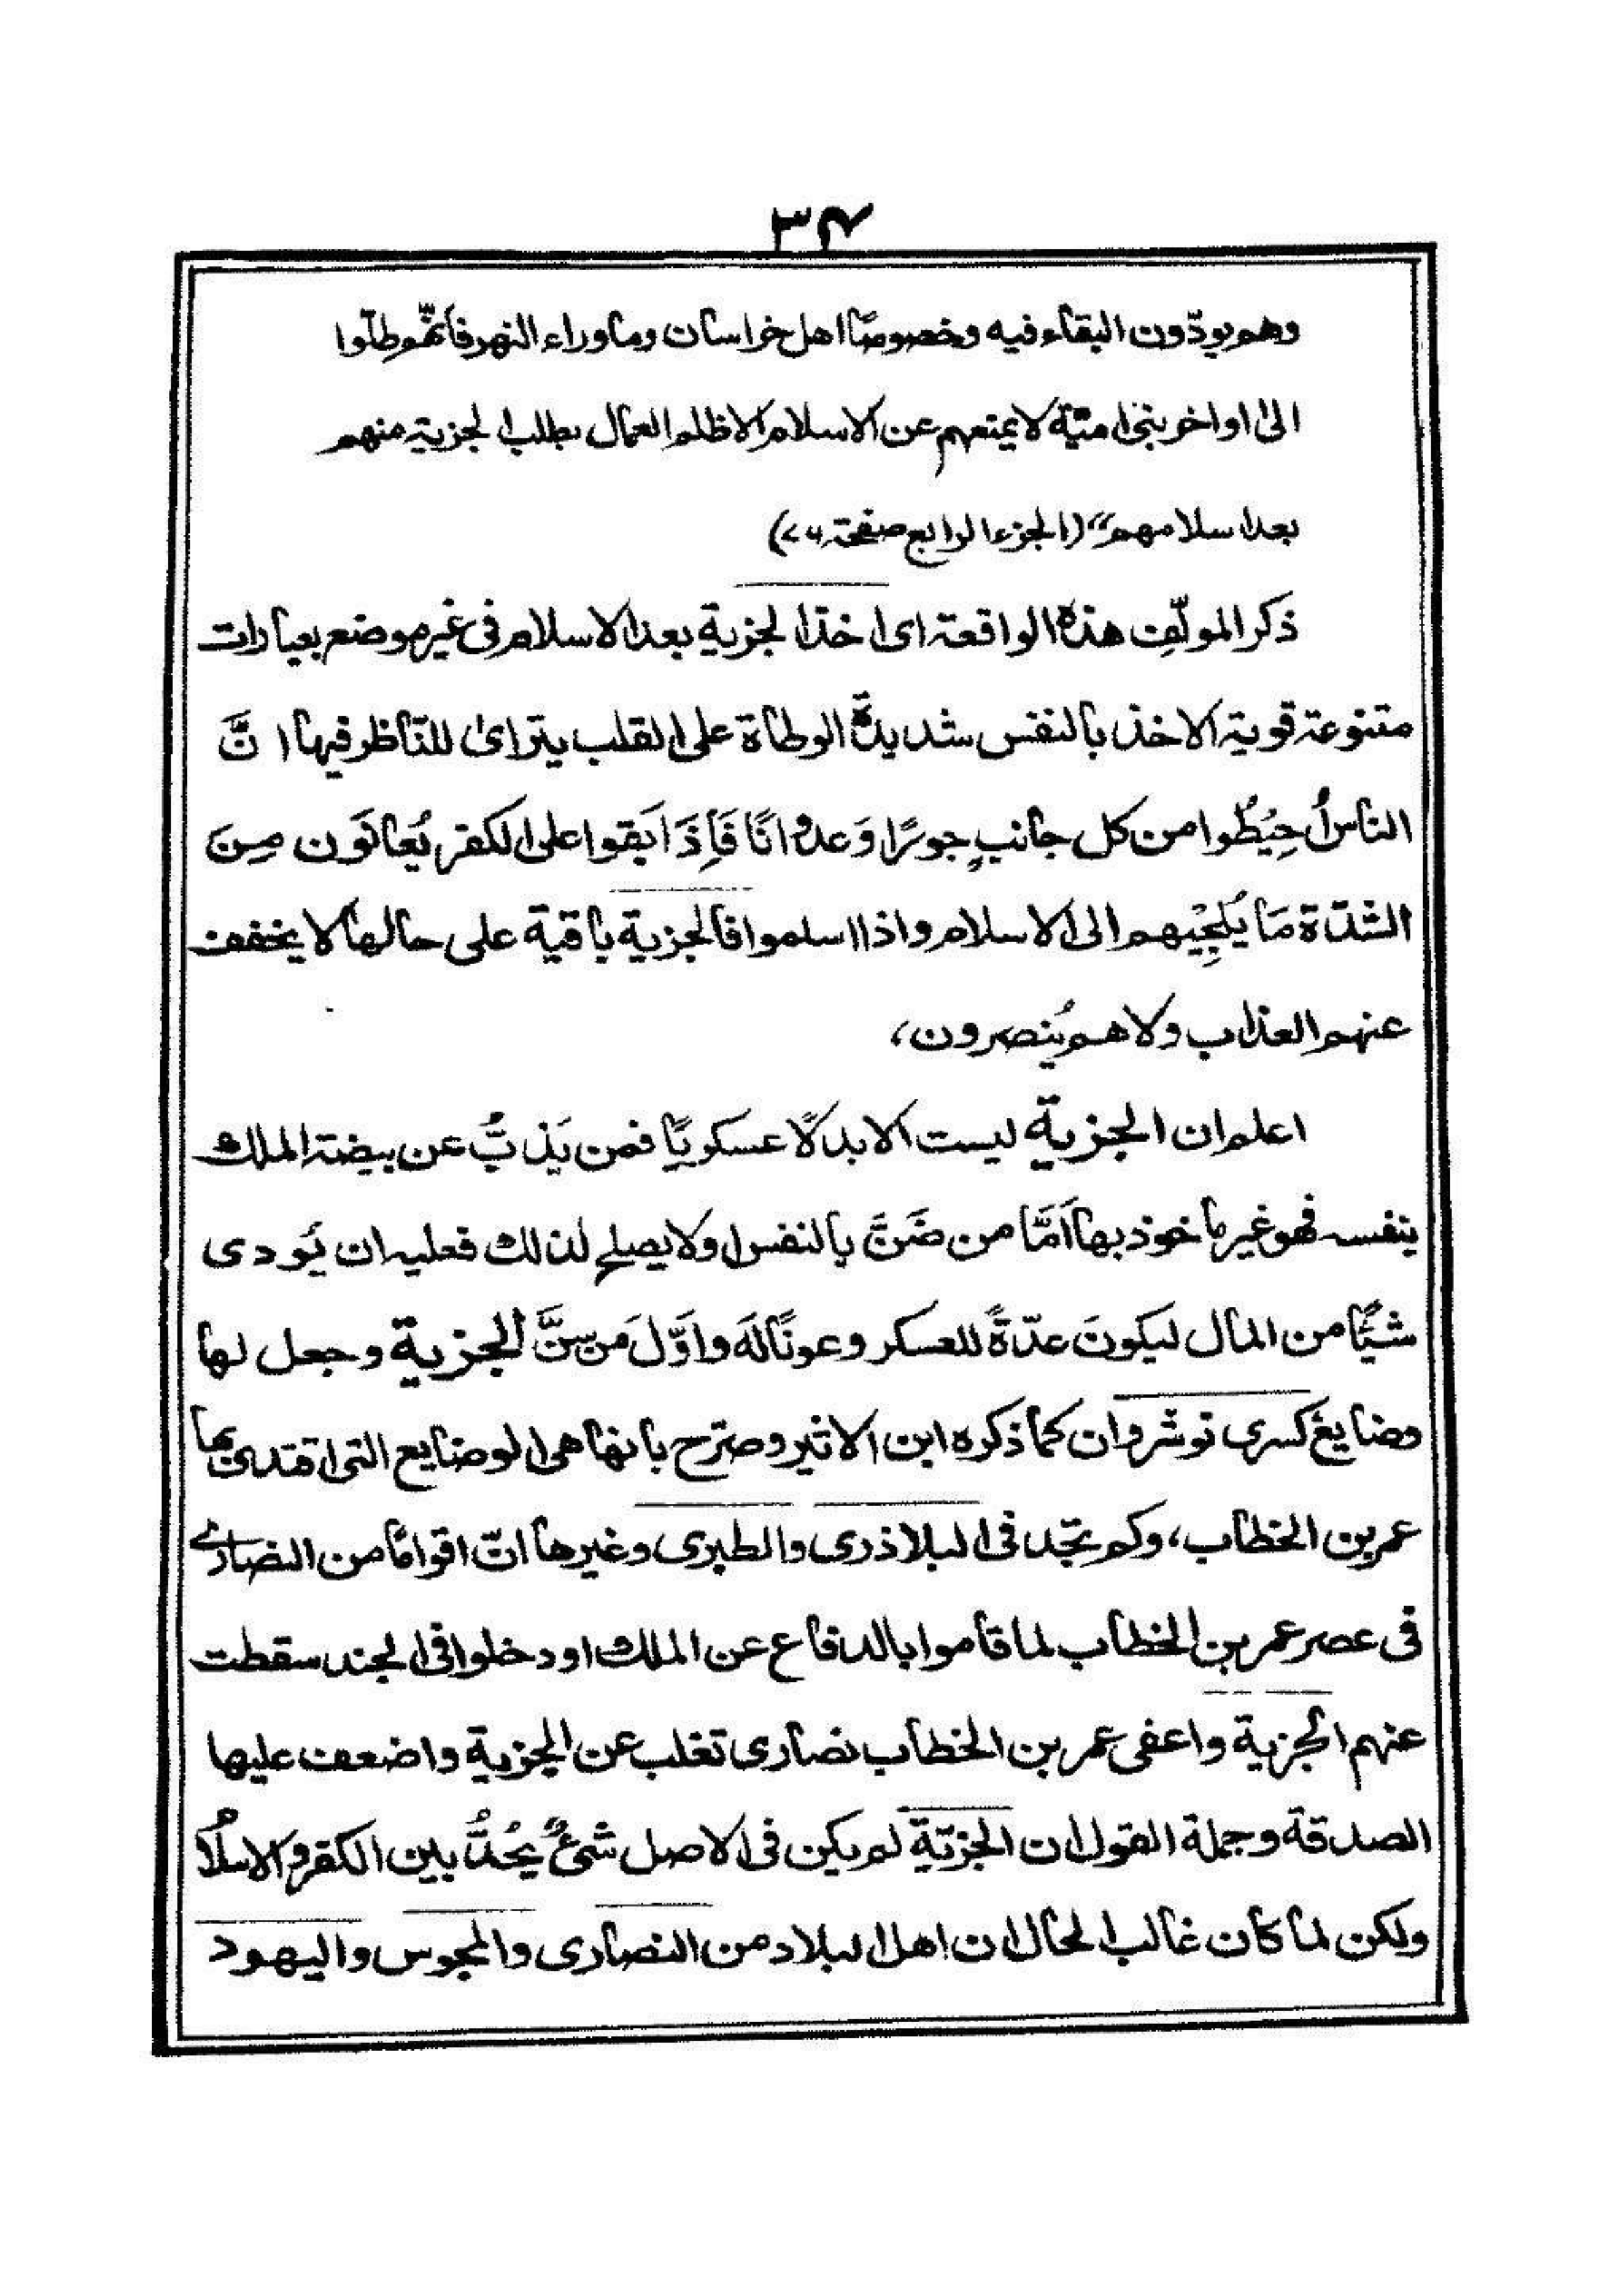 ٣٤
وهم يودّون البقاء فيه وخصوصًا اهل خراسان وماوراء النهر فانّهم ظلّوا
الى اواخر بنى امیّة لا يمنعهم عن الاسلام الا ظلم العمال بطلب الجزية منهم
بعد اسلامهم“ (الجزء الرابع صفحة ٧٦)
ذكر المولّف هذه الواقعة اى اخذ الجزية بعد الاسلام فى غير موضع بعبارات
متنوعة قوية الاخذ بالنفس شديدة الوطاة على القلب يتراىٰ للنّاظر فيها انَّ
الناسُ حِيُطُوا من كل جانبٍ جورًا وَعدوانًا فَاِذَا بقوا على الكفر يُعانَون مِنَ
الشدّة مَا يُلجِيهم الى الاسلام واذا اسلموا فالجزية باقية على حالها لا يخفف
عنهم العذاب ولا هم يُنصرون،
اعلم ان الجزية ليست الا بدلًا عسكريًا فمن يَذبُّ عن بيضة الملك
بنفسه فهو غير ماخوذ بها اَمَّا من ضَنَّ بالنفس ولا يصلح لذلك فعليه ان يُودى
شيئًا من المال ليكونَ عدّةً للعسكر وعونًا لَه واَوّلَ مَن سنَّ الجزية وجعل لها
وضايعَ كسرى نوشروان كما ذكره ابن الاثير وصرّح بانها هى الوضايع التى اقتدىٰ بها
عمر بن الخطاب، وكم تجد فى البلاذرى والطبرى وغيرها انّ اقوامًا من النصارىٰ
فى عصر عمر بن الخطاب لما قاموا بالدفاع عن الملك او دخلوا فى الجند سقطت
عنهم الجزية واعفى عمر بن الخطاب نصارى تغلب عن الجزية واضعف عليها
الصدقة وجملة القول ان الجزيّة لم يكن فى الاصل شئٌ يُحُدُّ بين الكفر والاسلام
ولكن لما كان غالب الحال ان اهل البلاد من النصارى والمجوس واليهود